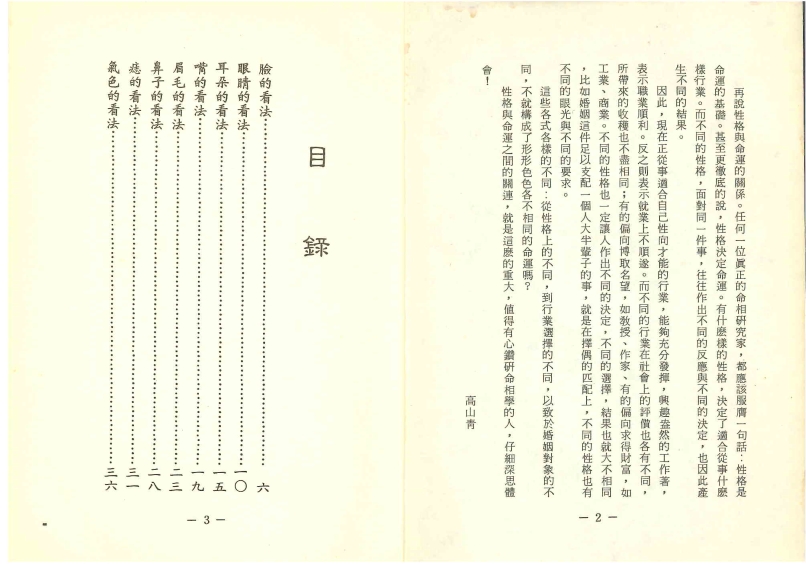 再說性格與命運的關係。任何一位眞正的命相研究家，都應該服膺一句話：性格是
命運的基礎。甚至更徹底的說，性格決定命運。有什麽樣的性格，決定了適合從事什麽
樣行業。而不同的性格，面對同一件事，往往作出不同的反應與不同的決定，也因此產
生不同的結果。
因此，現在正從事適合自己性向才能的行業，能夠充分發揮，興趣盎然的工作著，
表示職業順利。反之則表示就業上不順遂。而不同的行業在社會上的評價也各有不同，
所帶來的收穫也不盡相同；有的偏向博取名望，如教授、作家、有的偏向求得財富，如
工業、商業。不同的性格也一定讓人作出不同的決定，不同的選擇，結果也就大不相同
，比如婚姻這件足以支配一個人大半輩子的事，就是在擇偶的匹配上，不同的性格也有
不同的眼光與不同的要求。
這些各式各樣的不同：從性格上的不同，到行業選擇的不同，以致於婚姻對象的不
同，不就構成了形形色色各不相同的命運嗎？
性格與命運之間的關連，就是這麽的重大，値得有心鑽研命相學的人，仔細深思體
會！
高山青
— 2 —
目錄
臉的看法……………六
眼睛的看法……………一〇
耳朵的看法……………一五
嘴的看法……………一九
眉毛的看法……………二三
鼻子的看法……………二八
痣的看法……………三一
氣色的看法……………三六
— 3 —